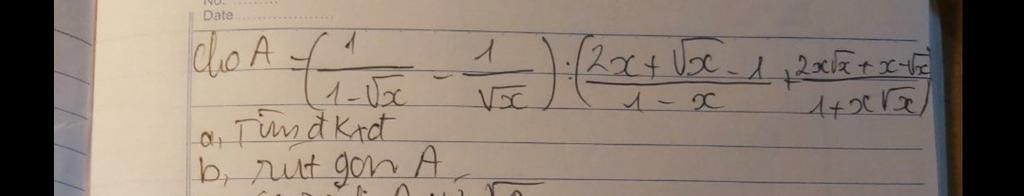 No.
Date
cho A = (1/(1-√x) - 1/√x) : ((2x+√x-1)/(1-x) + (2x√x+x-√x)/(1+x√x))
a, Tìm đkxđ
b, rút gọn A